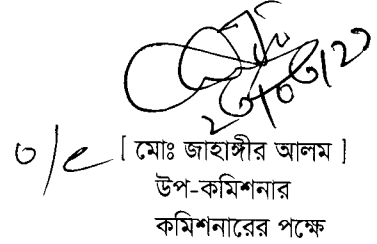 ০/c [ মোঃ জাহাঙ্গীর আলম ]
উপ-কমিশনার
কমিশনারের পক্ষে